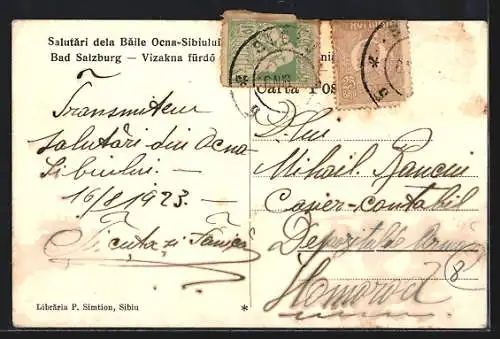 Salutări dela Băile Ocna-Sibiului
Bad Salzburg — Vizakna fürdő
Carta Pos
Transmitem
salutări din Ocna
Sibiului.—
16/8 1923.—
Nicuța și
Dlui
Mihail
Casier-contabil
Depozitele
Homorod
8
Librăria P. Simtion, Sibiu
*